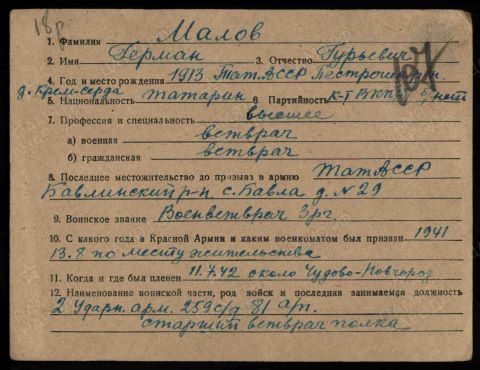 18р.
1. Фамилия Малов
2. Имя Герман 3. Отчество Гурьевич
4. Год и место рождения 1913 Тат.АССР Пестречинский
д. Крям-серда
5. Национальность татарин 6. Партийность к-т ВКП б/нет
107
7. Профессия и специальность высшее
а) военная ветврач
б) гражданская ветврач
8. Последнее местожительство до призыва в армию ТатАССР
Бавлинский р-н с. Бавла д. N 29
9. Воинское звание Военветврач 3рг.
10. С какого года в Красной Армии и каким военкоматом был призван 1941
13.8 по месту жительства
11. Когда и где был пленен 11.7.42 около Чудово-Новгород
12. Наименование воинской части, род войск и последняя занимаемая должность
2 Ударн. арм. 259 с/д 81 а/п.
старший ветврач полка